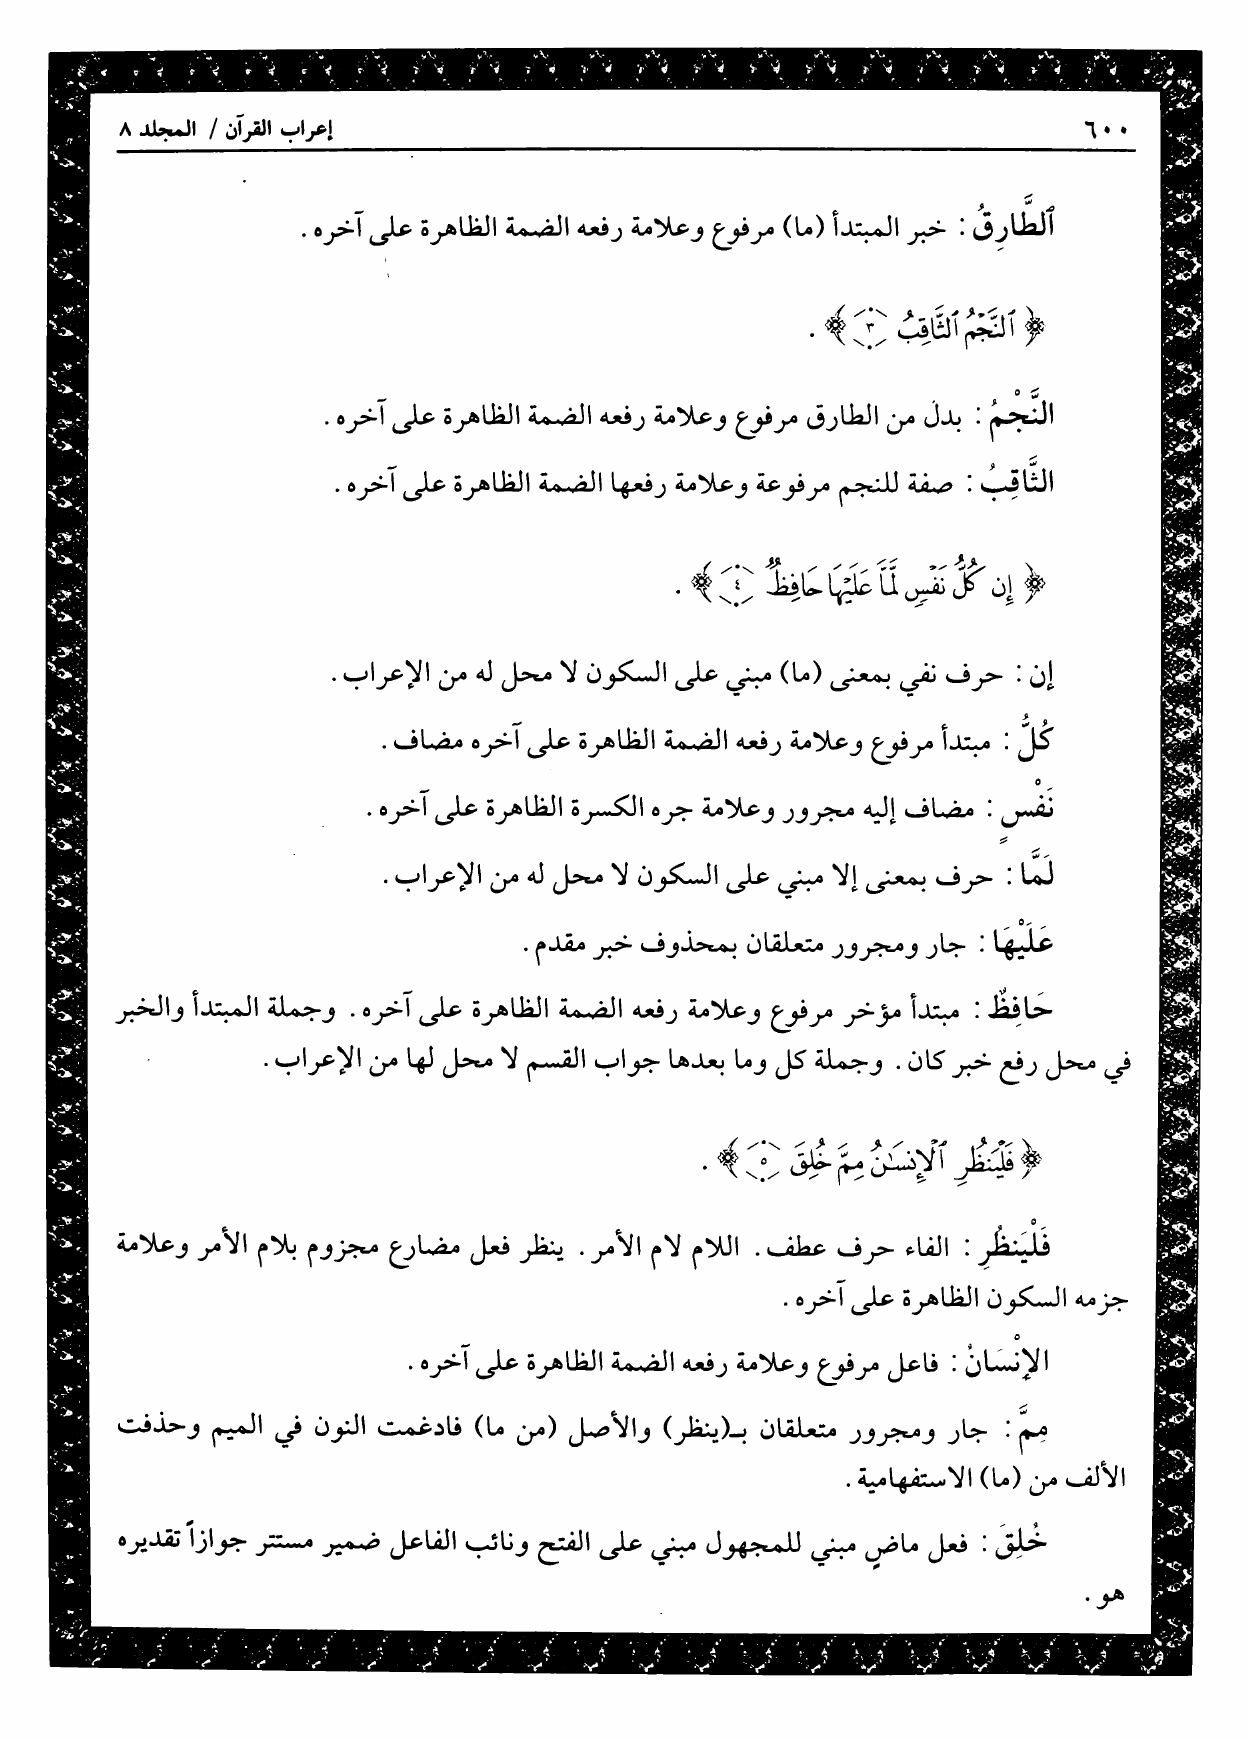 ٦٠٠
إعراب القرآن / المجلد ٨
ٱلطَّارِقُ : خبر المبتدأ (ما) مرفوع وعلامة رفعه الضمة الظاهرة على آخره .
﴿ ٱلنَّجْمُ ٱلثَّاقِبُ ٣ ﴾ .
النَّجْمُ : بدل من الطارق مرفوع وعلامة رفعه الضمة الظاهرة على آخره .
الثَّاقِبُ : صفة للنجم مرفوعة وعلامة رفعها الضمة الظاهرة على آخره .
﴿ إِن كُلُّ نَفْسٍ لَّمَّا عَلَيْهَا حَافِظٌ ٤ ﴾ .
إن : حرف نفي بمعنى (ما) مبني على السكون لا محل له من الإعراب .
كُلُّ : مبتدأ مرفوع وعلامة رفعه الضمة الظاهرة على آخره مضاف .
نَفْسٍ : مضاف إليه مجرور وعلامة جره الكسرة الظاهرة على آخره .
لَمَّا : حرف بمعنى إلا مبني على السكون لا محل له من الإعراب .
عَلَيْهَا : جار ومجرور متعلقان بمحذوف خبر مقدم .
حَافِظٌ : مبتدأ مؤخر مرفوع وعلامة رفعه الضمة الظاهرة على آخره . وجملة المبتدأ والخبر
في محل رفع خبر كان . وجملة كل وما بعدها جواب القسم لا محل لها من الإعراب .
﴿ فَلْيَنظُرِ ٱلْإِنسَٰنُ مِمَّ خُلِقَ ٥ ﴾ .
فَلْيَنظُرِ : الفاء حرف عطف . اللام لام الأمر . ينظر فعل مضارع مجزوم بلام الأمر وعلامة
جزمه السكون الظاهرة على آخره .
الإنْسَانُ : فاعل مرفوع وعلامة رفعه الضمة الظاهرة على آخره .
مِمَّ : جار ومجرور متعلقان بـ(ينظر) والأصل (من ما) فادغمت النون في الميم وحذفت
الألف من (ما) الاستفهامية .
خُلِقَ : فعل ماضٍ مبني للمجهول مبني على الفتح ونائب الفاعل ضمير مستتر جوازاً تقديره
هو .